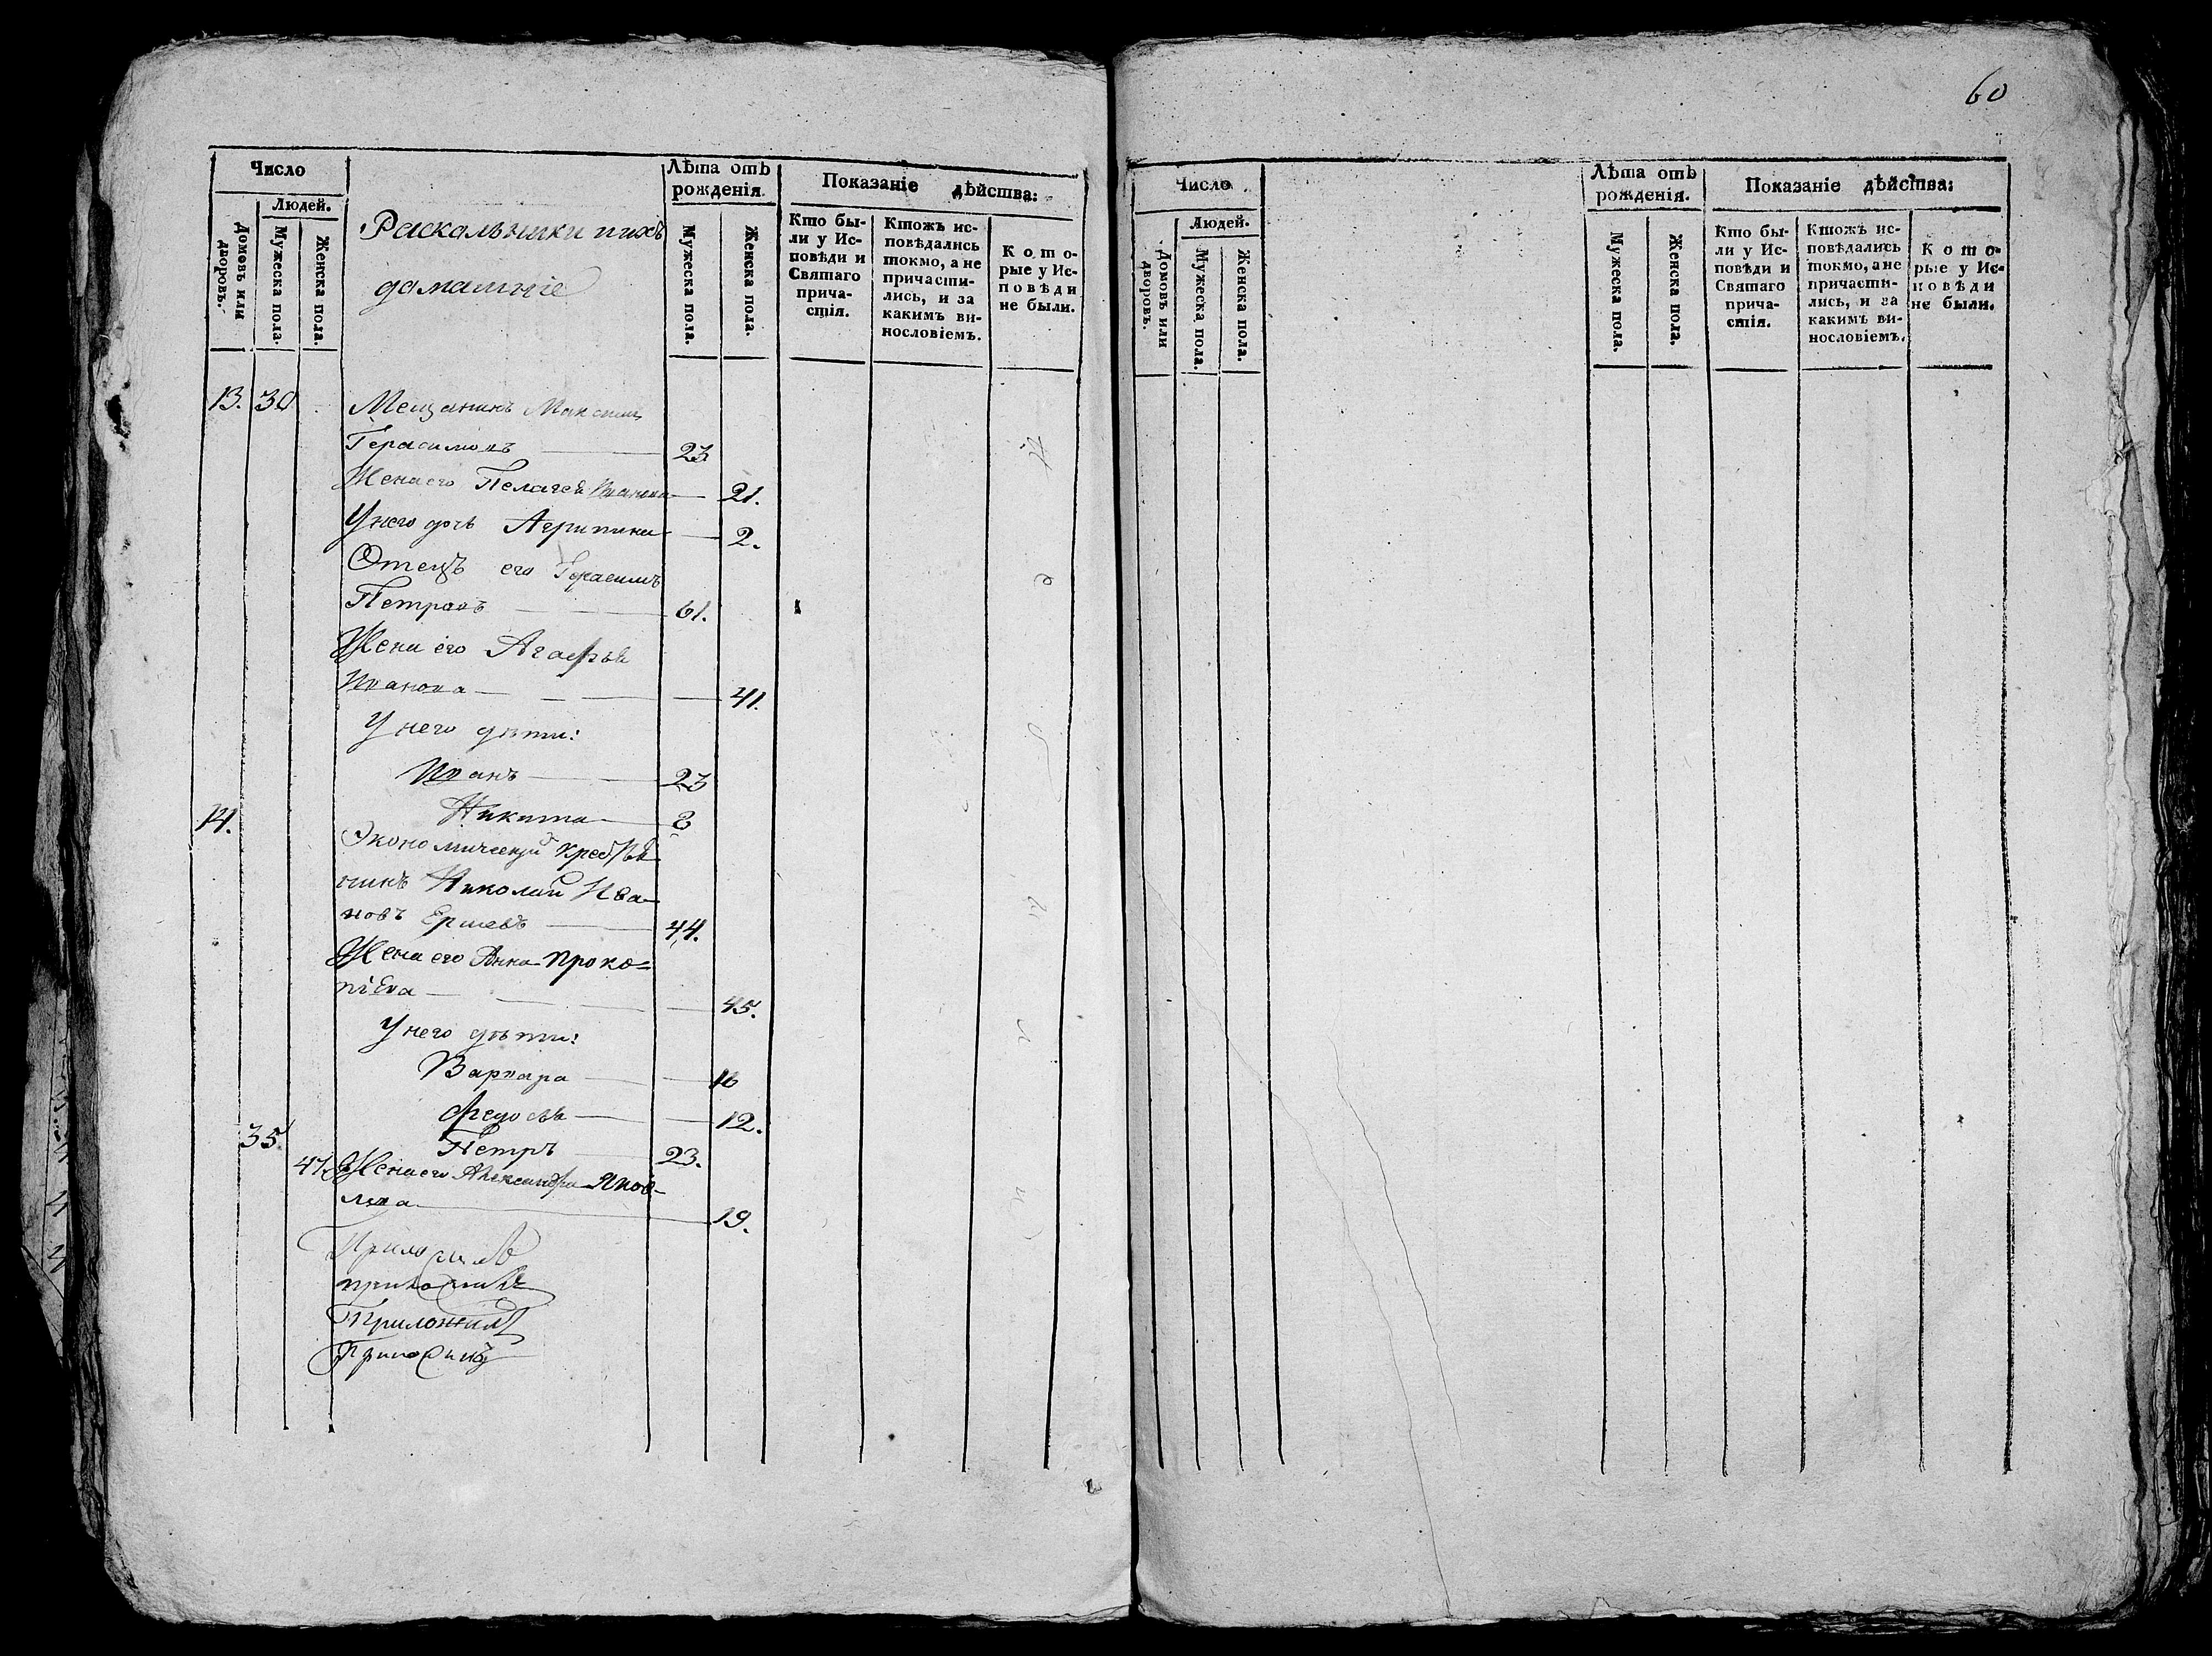 60
Число
Людей.
Домовъ или дворовъ.
Мужеска пола.
Женска пола.
Раскольники ихъ
домашніе
Лѣта отъ рожденія.
Мужеска пола.
Женска пола.
Показаніе дѣйства:
Кто бы-
ли у Ис-
повѣди и
Святаго
прича-
стія.
Ктожъ ис-
повѣдались
токмо, а не
причасти-
лись, и за
какимъ ви-
нословіемъ.
Кото-
рые у Ис-
повѣди
не были.
13. 30 Мещанинъ Максимъ
Герасимовъ 23
Жена его Пелагея Иванова 21.
У него дочь Агрипина 2.
Отецъ его Герасимъ
Петровъ 61.
Жена его Агафья
Иванова 41.
У него дѣти:
Иванъ 23
Никита 8
14.
Экономическій крестья
нинъ Николай Ива
новъ Ершевъ 44.
Жена его Анна Проко=
піева 45.
У него дѣти:
Варвара 16
Федосья 12.
35. Петръ 23.
47. Жена его Александра Яков-
лева 19.
Приложилъ
Число
Людей.
Домовъ или дворовъ.
Мужеска пола.
Женска пола.
Лѣта отъ рожденія.
Мужеска пола.
Женска пола.
Показаніе дѣйства:
Кто бы-
ли у Ис-
повѣди и
Святаго
прича-
стія.
Ктожъ ис-
повѣдались
токмо, а не
причасти-
лись, и за
какимъ ви-
нословіемъ.
Кото-
рые у Ис-
повѣди
не были.